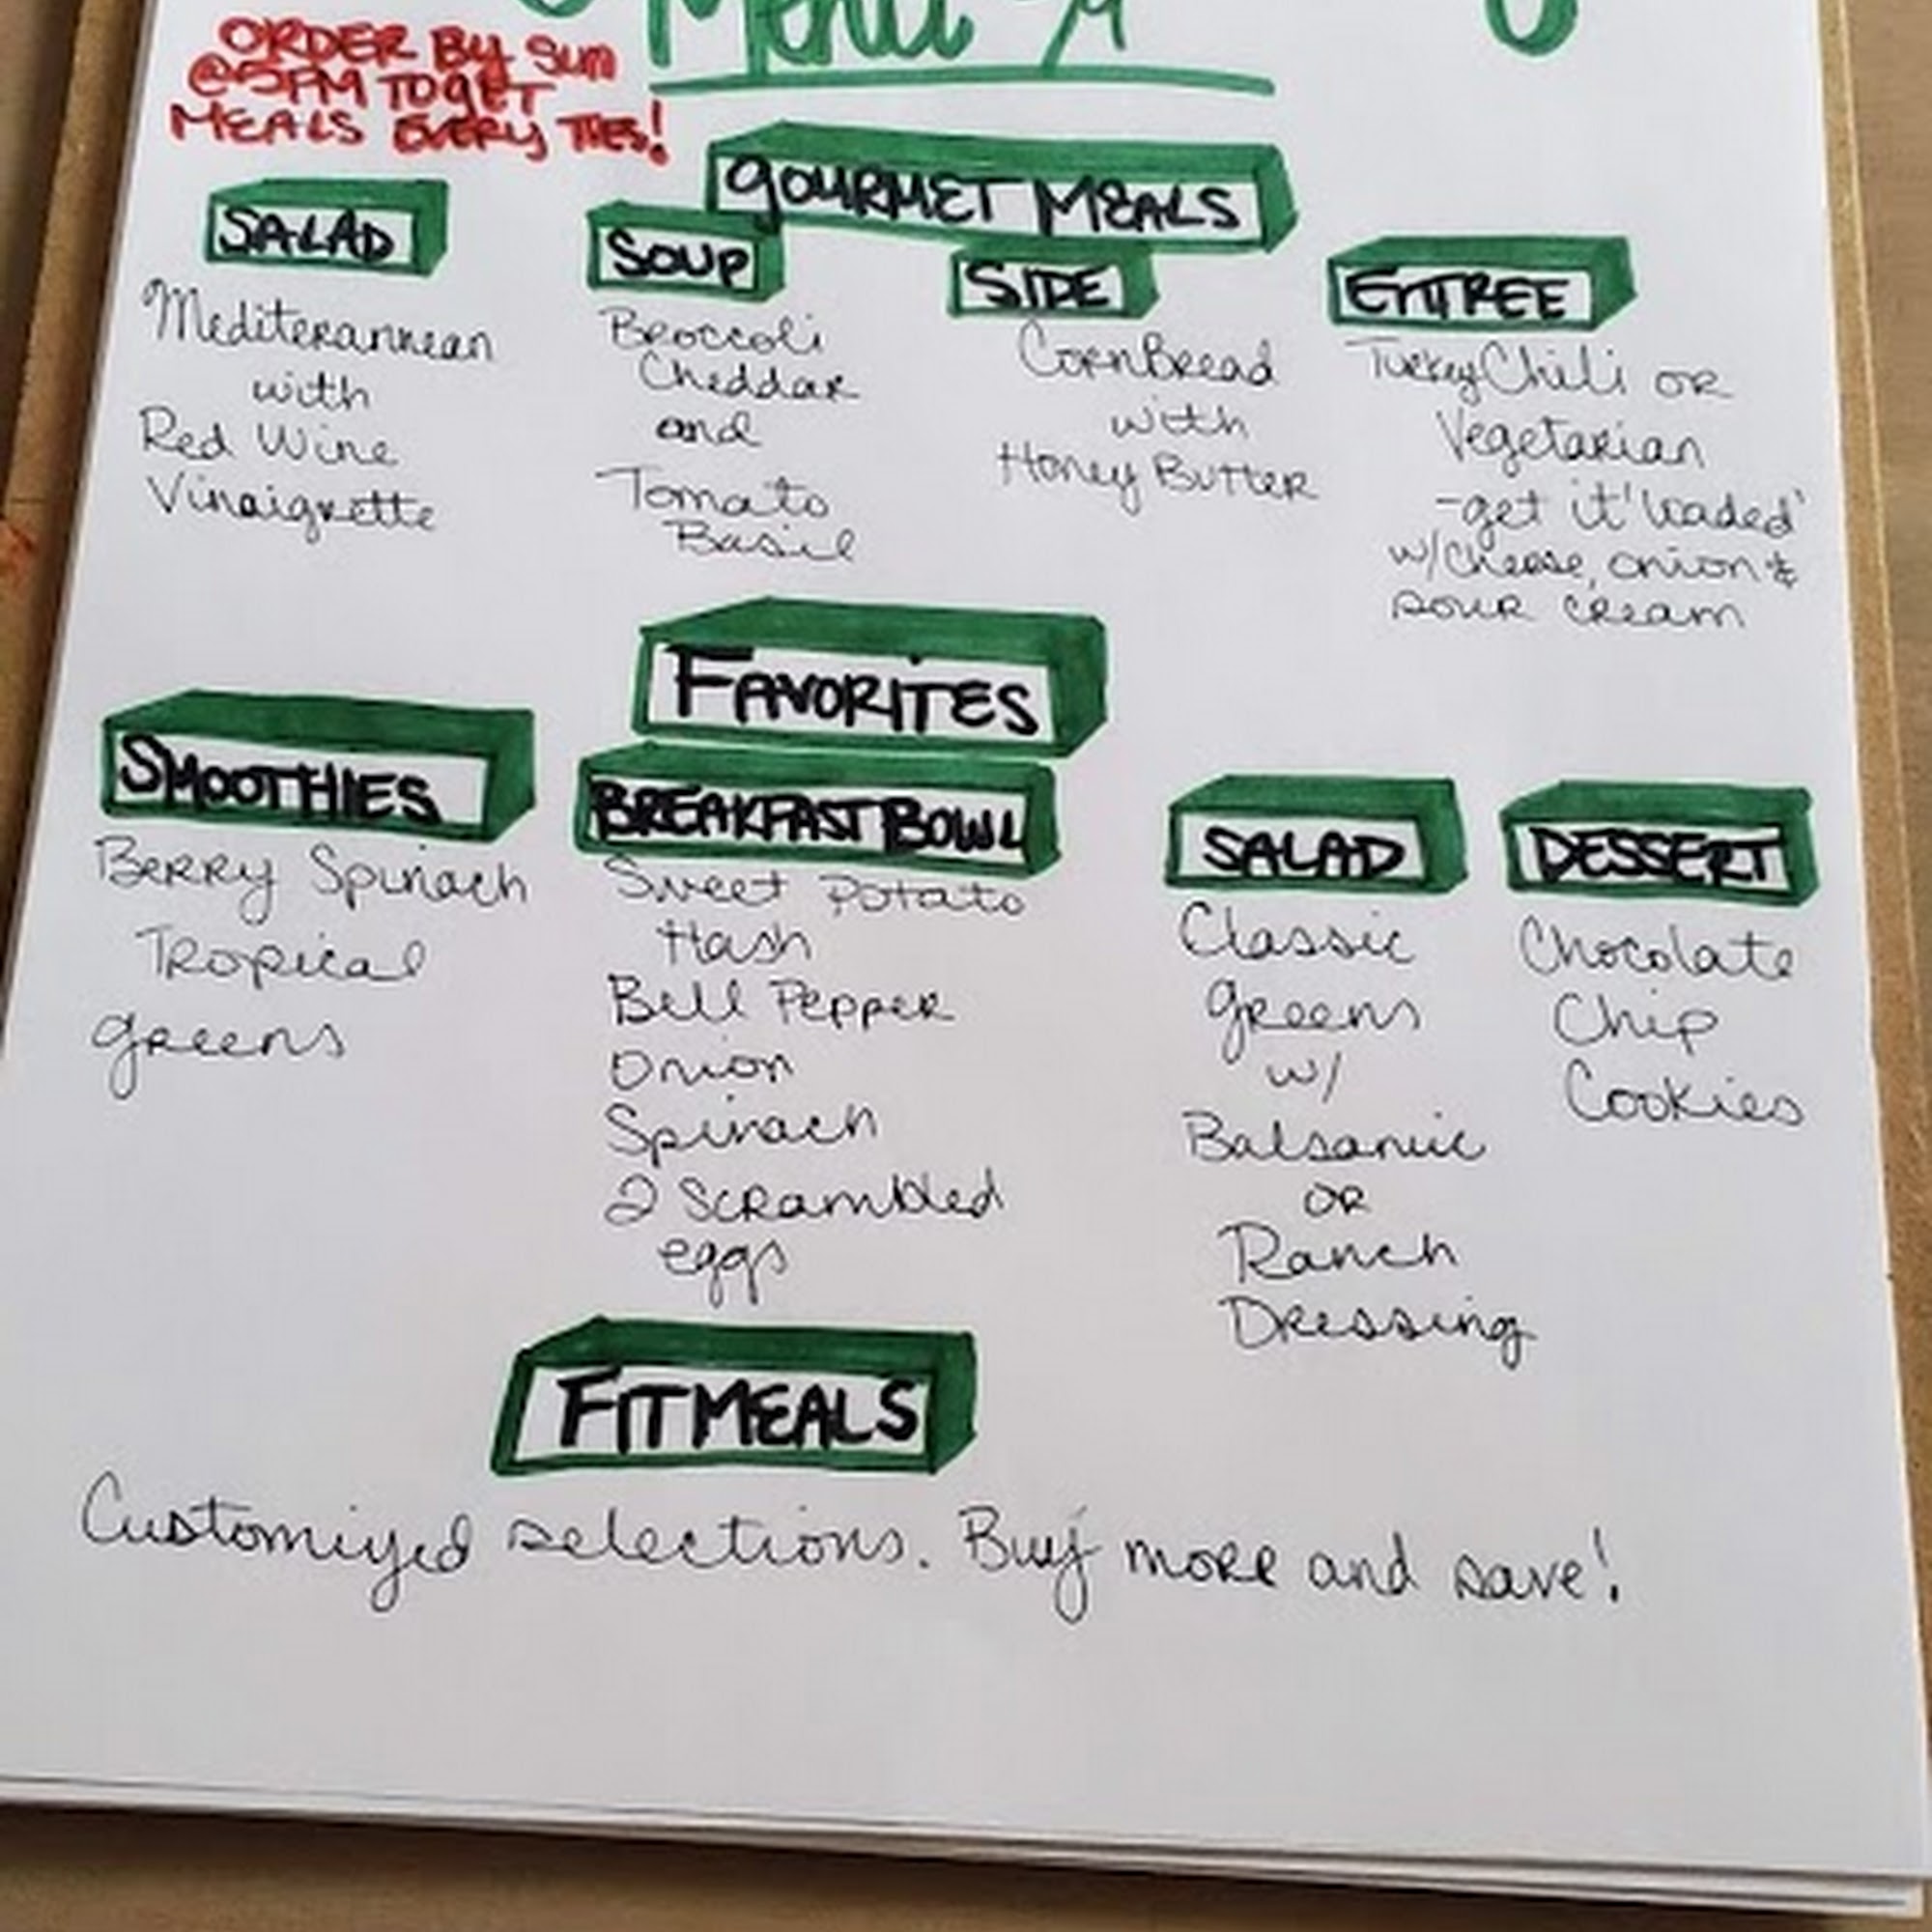 Menu
ORDER BY SUN
@5PM TO GET
MEALS EVERY TUES!
GOURMET MEALS
SALAD
Mediterannean
with
Red Wine
Vinaigrette
SOUP
Broccoli
Cheddar
and
Tomato
Basil
SIDE
CornBread
with
Honey Butter
ENTREE
Turkey Chili or
Vegetarian
-get it 'loaded'
w/cheese, onion &
sour cream
FAVORITES
SMOOTHIES
Berry Spinach
Tropical
greens
BREAKFAST BOWL
Sweet Potato
Hash
Bell Pepper
Onion
Spinach
2 Scrambled
eggs
SALAD
Classic
greens
w/
Balsamic
OR
Ranch
Dressing
DESSERT
Chocolate
Chip
Cookies
FIT MEALS
Customized selections. Buy more and save!